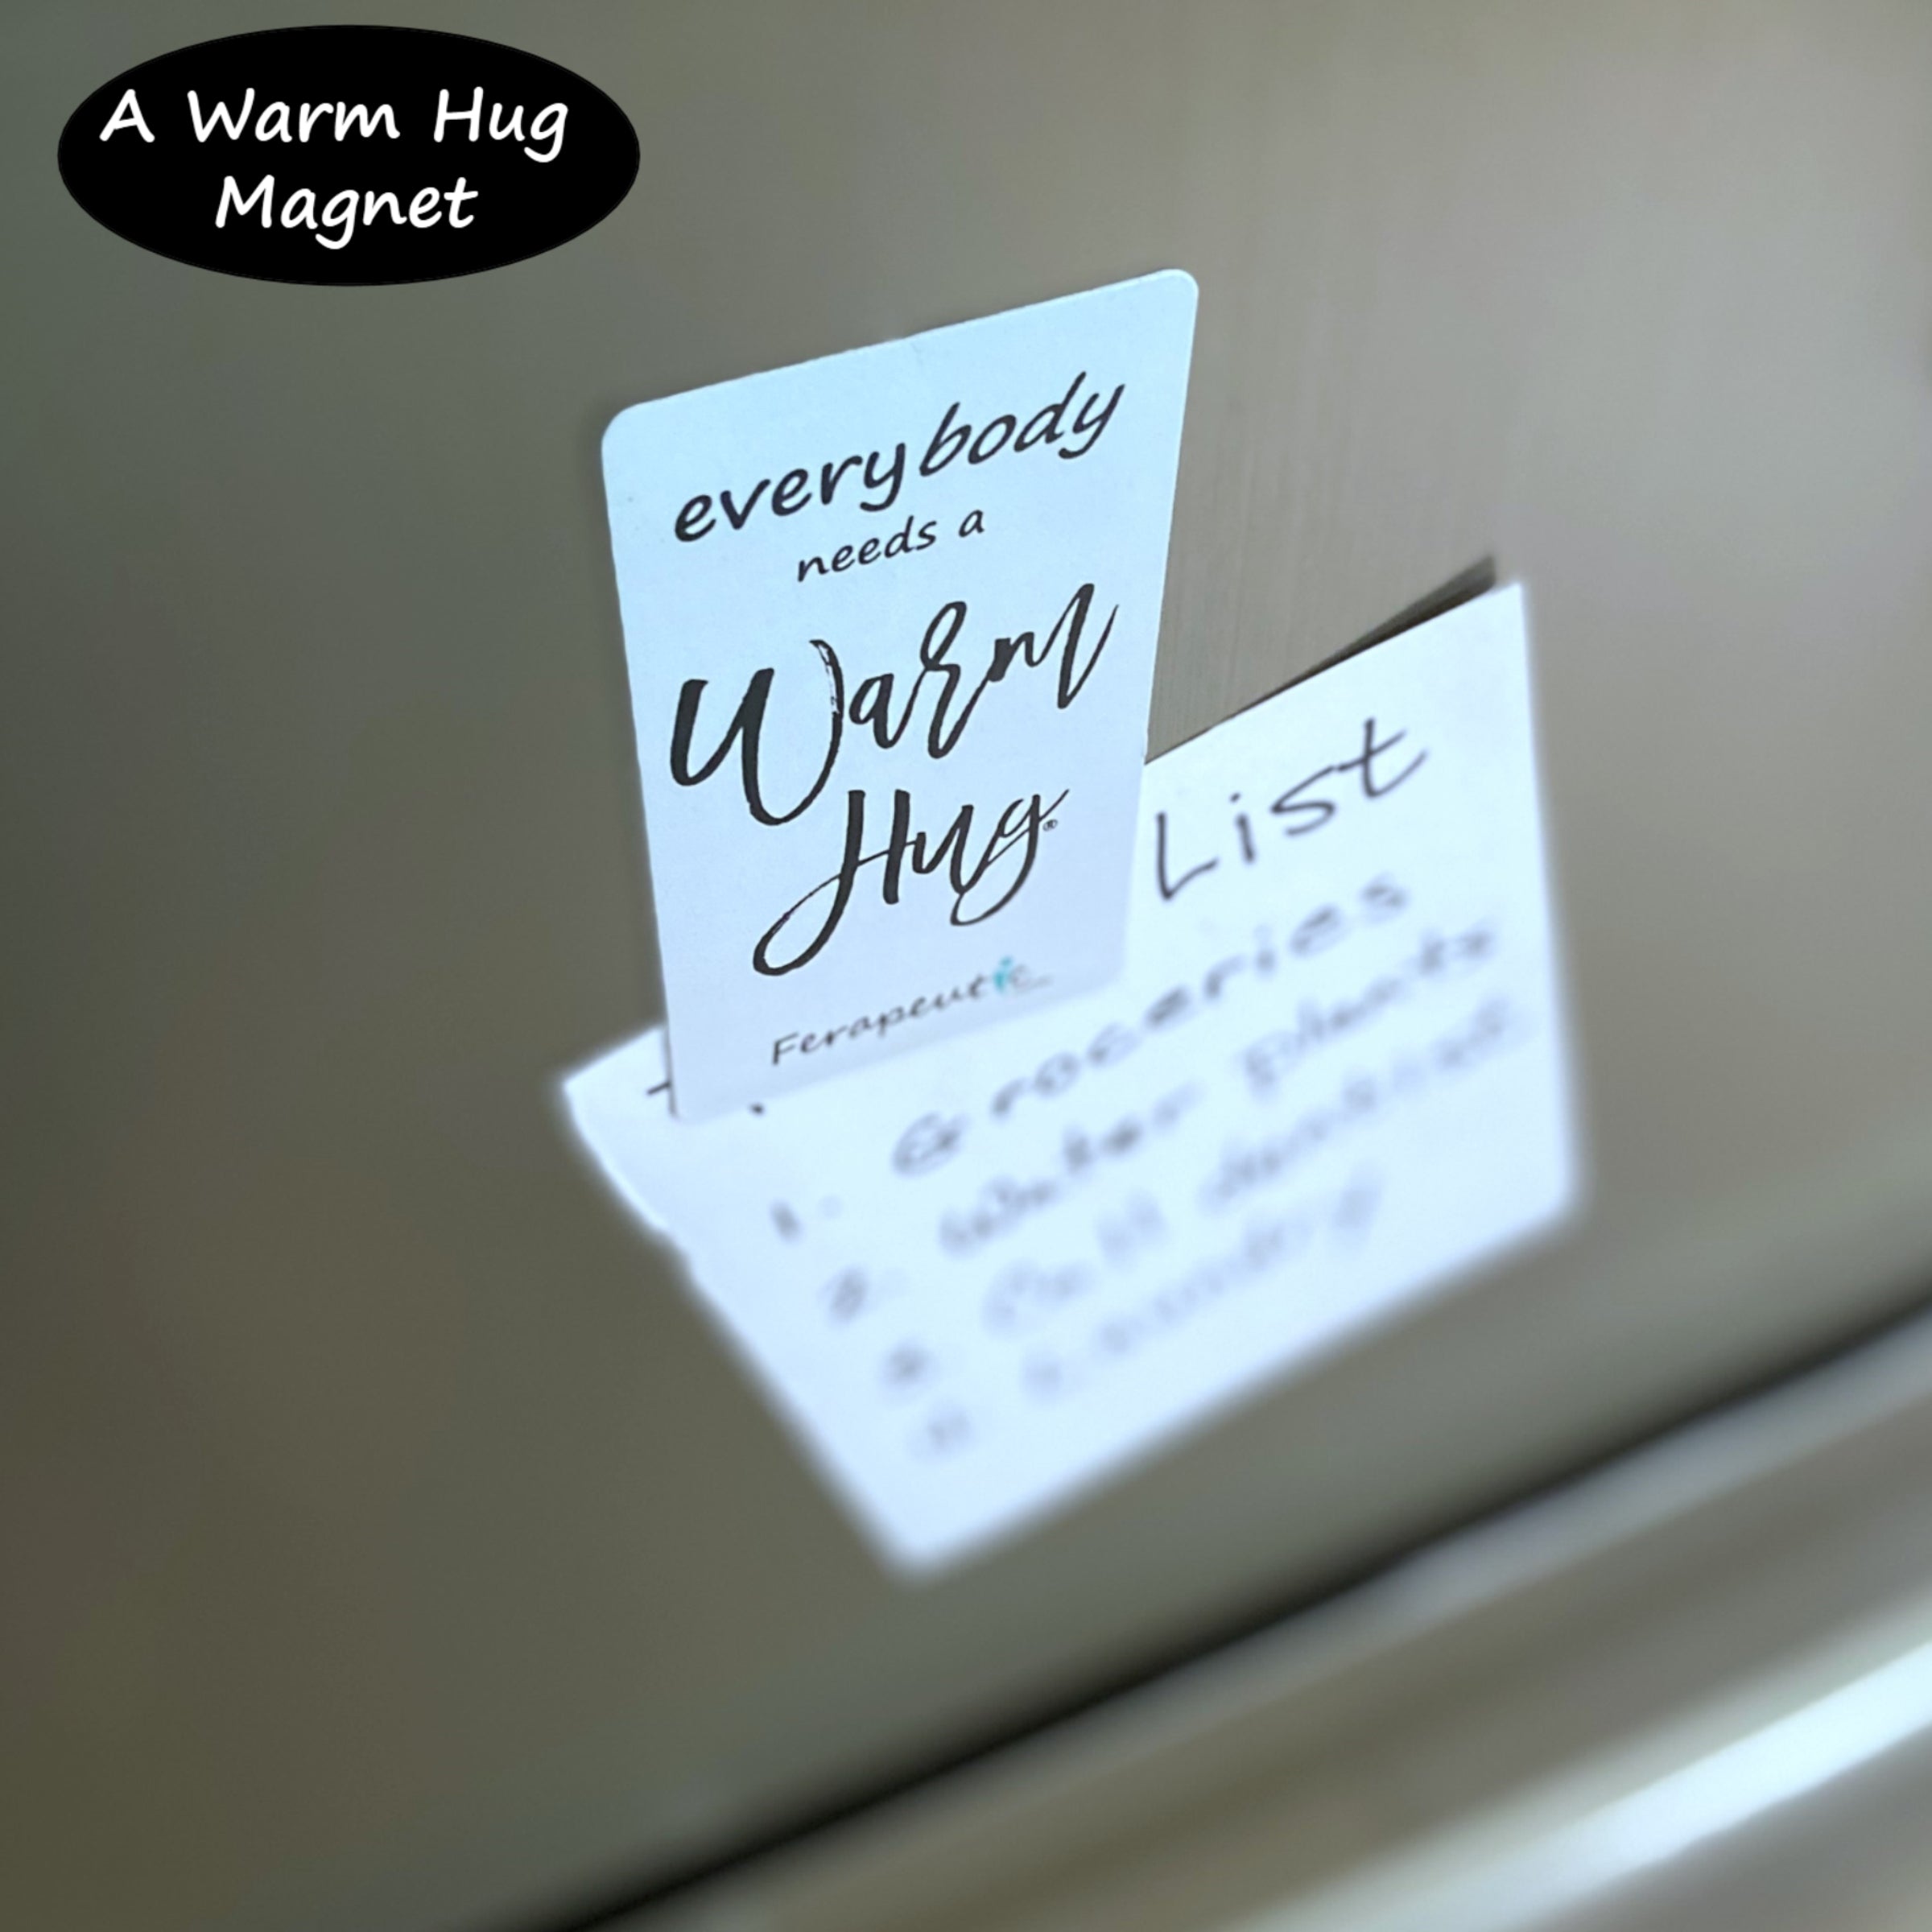 A Warm Hug
Magnet
everybody
needs a
Warm
Hug®
Ferapeutic
List
1. Groceries
Water plants
Call